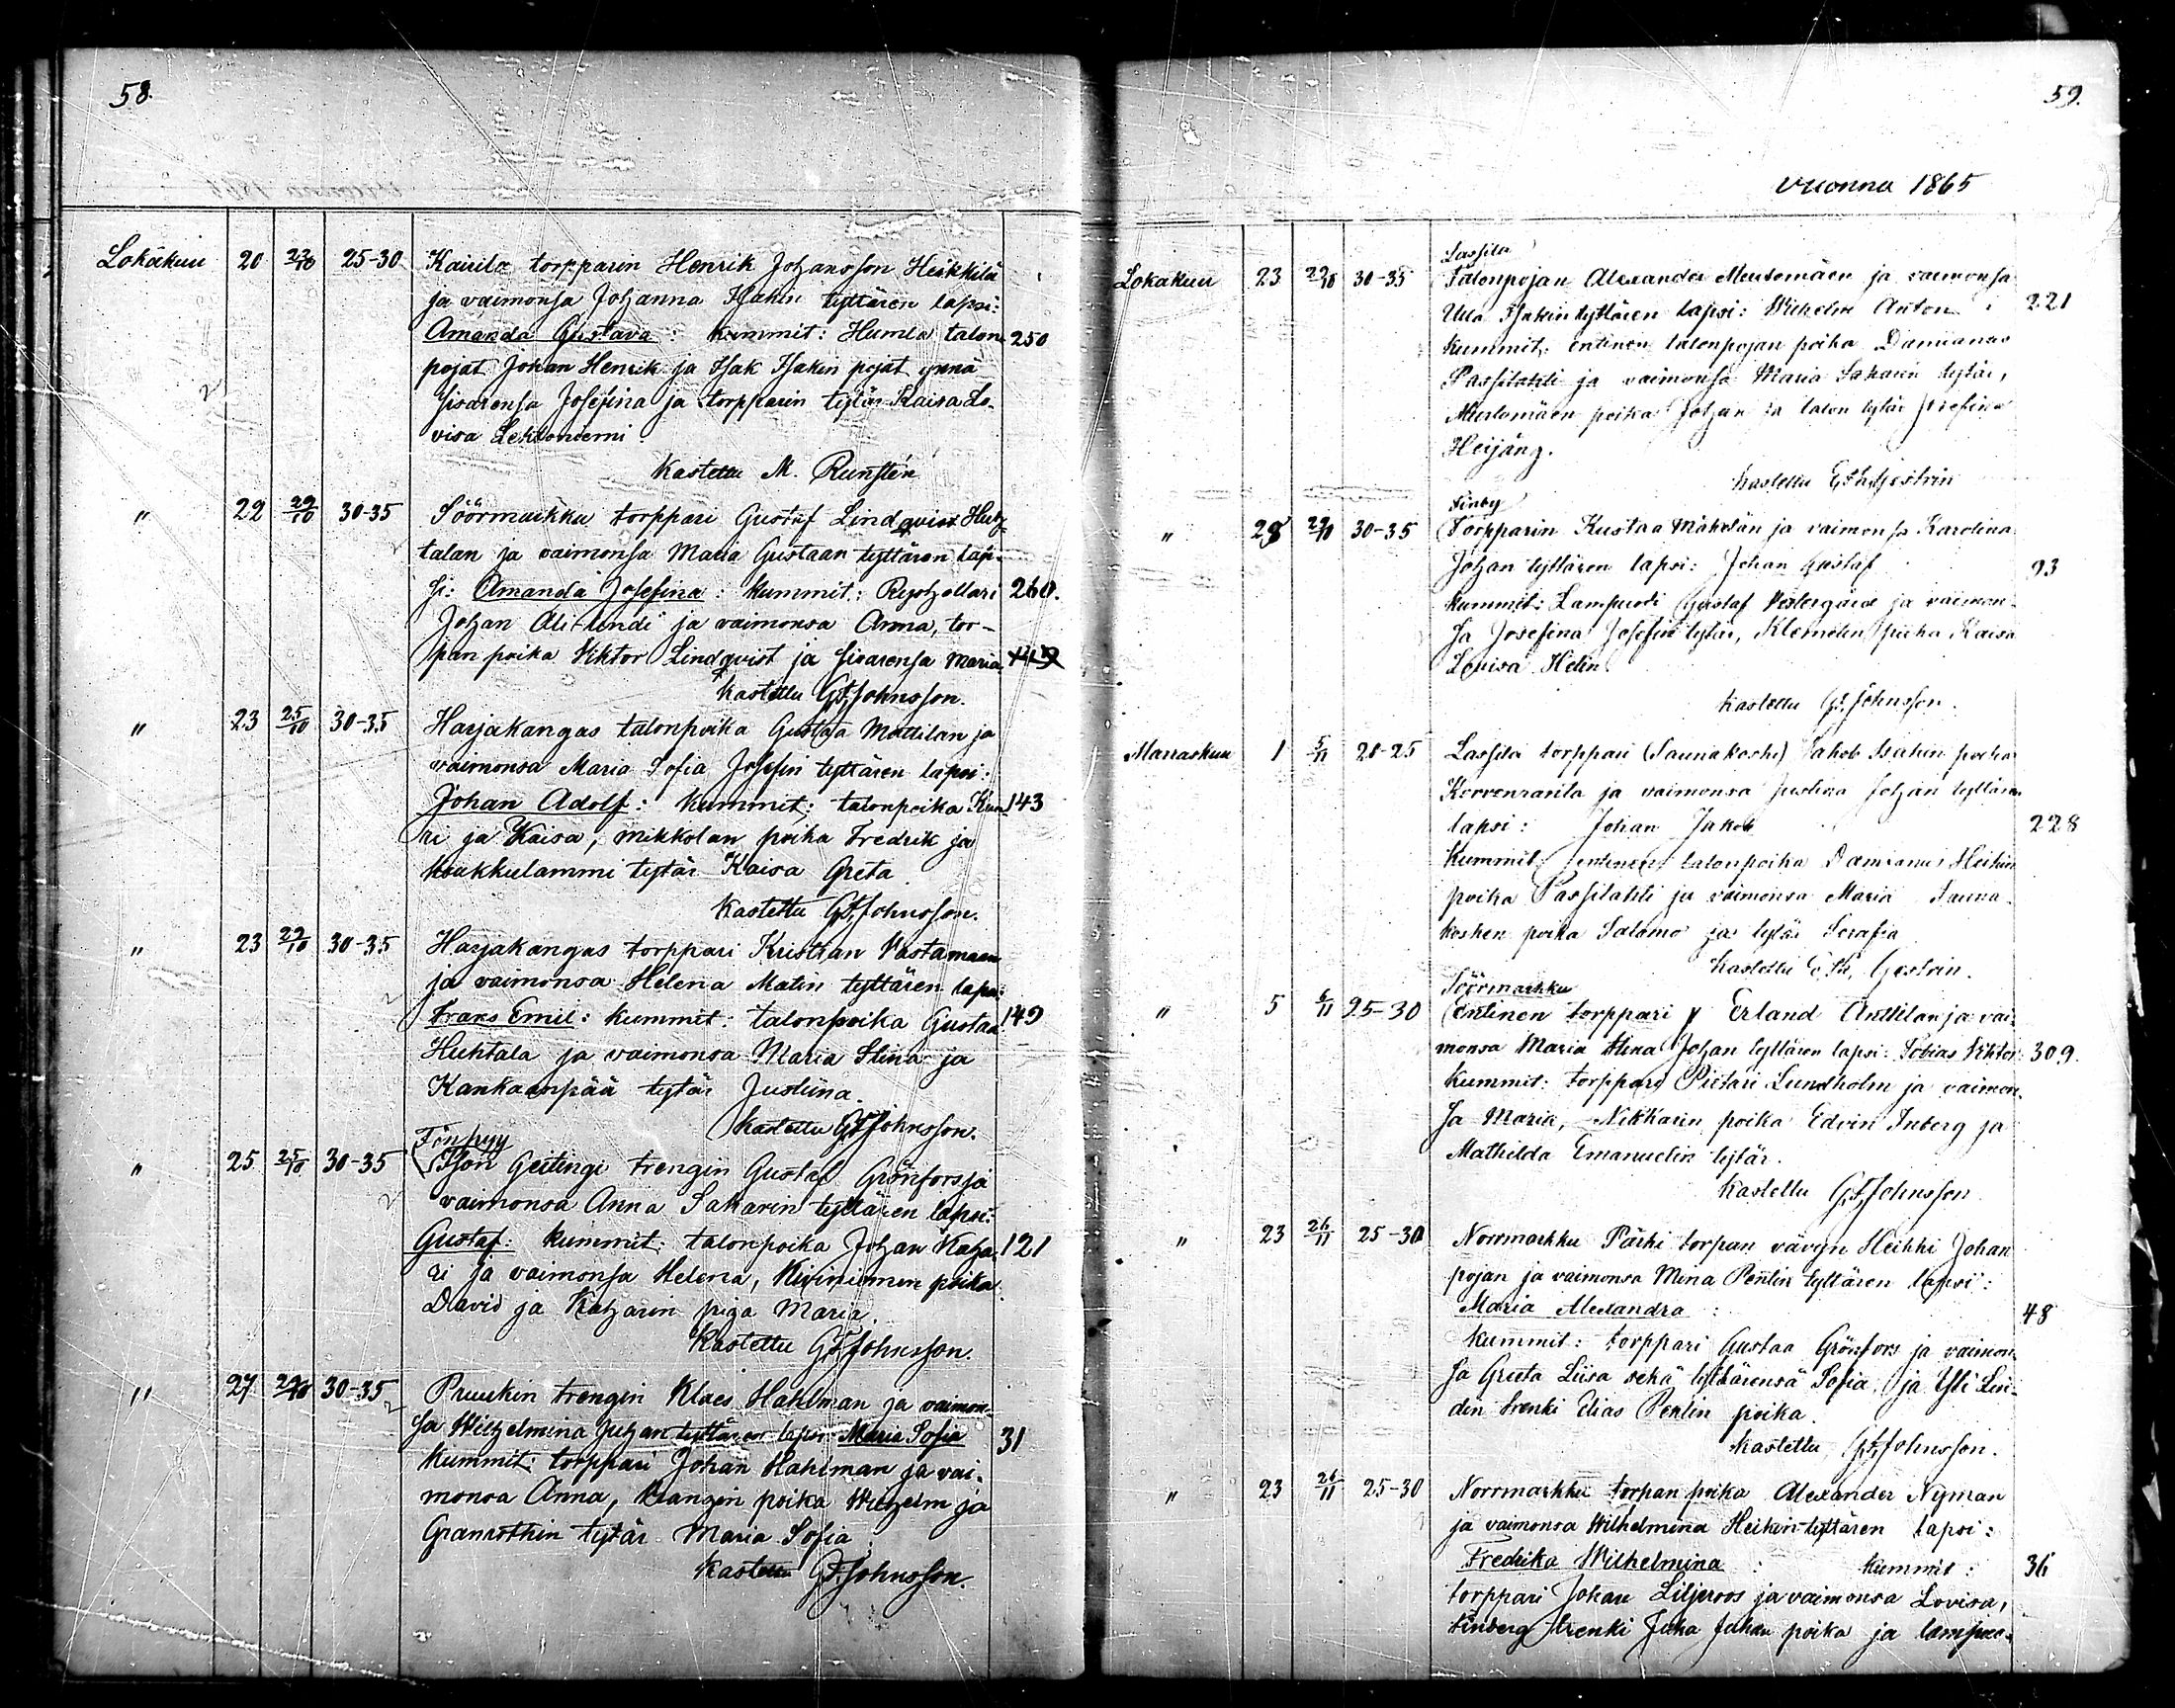 58.
Lokakuu 20 22/10 25-30 Kairila torpparin Henrik Johansson Heikkilä
ja vaimonsa Johanna Isakin tyttären lapsi:
Amanda Gustava: kummit: Humla talon 250
pojat Johan Henrik ja Isak Isakin pojat ynnä
sisarensa Josefina ja torpparin tytär Kaisa Lo-
visa Lehtoniemi.
Kastettu M. Runstén
" 22 29/10 30-35 Söörmarkku torppari Gustaf Lindqvist Huh-
talan ja vaimonsa Maria Gustaan tyttären lap-
si: Amanda Josefina: kummit: 260.
Johan ja vaimonsa Anna, tor-
pan poika Viktor Lindqvist ja sisarensa Maria.
Kastettu G.F. Johnsson.
" 23 25/10 30-35 Harjakangas talonpoika Gustaa Mattilan ja
vaimonsa Maria Sofia Josefin tyttären lapsi:
Johan Adolf: kummit: talonpoika 143
ja Kaisa, Mikkolan poika Fredrik ja
Koukkulammi tytär Kaisa Greta
Kastettu G.F. Johnsson.
" 23 29/10 30-35 Harjakangas torppari Kristian Vastamaen
ja vaimonsa Helena Matin tyttären lapsi:
Frans Emil: kummit: talonpoika Gustaa 149
Huhtala ja vaimonsa Maria Stina ja
Kankaanpää tytär Justiina.
Kastettu G.F. Johnsson.
Finpyy
" 25 25/10 30-35 Ison Geitingi trengin Gustaf Grönfors ja
vaimonsa Anna Sakarin tyttären lapsi:
Gustaf: kummit: talonpoika Johan Katja- 121
ri ja vaimonsa Helena, Kiviniemen poika
David ja Katjarin piga Maria.
Kastettu G.F. Johnsson.
" 27 29/10 30-35 Pruukin trengin Klaes Hahlman ja vaimon-
sa Wilhelmina Juhan tyttären lapsi Maria Sofia 31
Kummit: torppari Johan Hahlman ja vai-
monsa Anna, poika Wilhelm ja
Granrothin tytär Maria Sofia
Kastettu G.F. Johnsson.
59.
vuonna 1865
Lassila
Lokakuu 23 29/10 30-35 Talonpojan Alexander Mustomäen ja vaimonsa
Ulla Isakin tyttären lapsi: Wilhelm Anton: 221
Kummit: entinen talonpojan poika Damianus
Passilahti ja vaimonsa Maria Sakarin tytär,
Mustomäen poika Johan ja talon tytär Josefina
Heijäng.
Kastettu Gestrin
Finby
" 29/10 30-35 Torpparin Kustaa Mäkelän ja vaimonsa Karolina
Johan tyttären lapsi: Johan Gustaf 93
Kummit: Lampuodi Gustaf Westergård ja vaimon-
sa Josefina Josefin tytär, poika Kaisa
Lovisa Helin.
Kastettu G.F. Johnsson.
Marraskuu 1 5/11 20-25 Lassila torppari (Saunakoski) Jakob Isakin poika
Korvenranta ja vaimonsa Justina Johan tyttären
lapsi: Johan Jakob 228
Kummit: entinen talonpoika Damianus Heikin
poika Passilahti ja vaimonsa Maria Sauna-
kosken poika Salomo ja tytär Serafia
Kastettu Gestrin.
Söörmarkku
" 5 6/11 25-30 Entinen torppari Erland Anttilan ja vai-
monsa Maria Stina Johan tyttären lapsi: Tobias Viktor: 309.
Kummit: torppari Pietari Lundholm ja vaimon-
sa Maria, Nikkarin poika Edvin Inberg ja
Mathilda Emanuelin tytär.
Kastettu G.F. Johnsson
" 23 26/11 25-30 Norrmarkku Pärki torpan vävyn Heikki Johan
pojan ja vaimonsa Mina Pentin tyttären lapsi:
Maria Alexandra: 48
Kummit: torppari Gustaa Grönfors ja vaimon-
sa Greta Liisa sekä tyttärensä Sofia, ja Yli Lin-
den trenki Elias Pentin poika.
Kastettu G.F. Johnsson.
" 23 26/11 25-30 Norrmarkku torpan poika Alexander Nyman
ja vaimonsa Wilhelmina Heikin tyttären lapsi:
Fredrika Wilhelmina: kummit: 36
torppari Johan Liljeroos ja vaimonsa Lovisa,
Finberg trenki Juha Juhan poika ja lampuo-